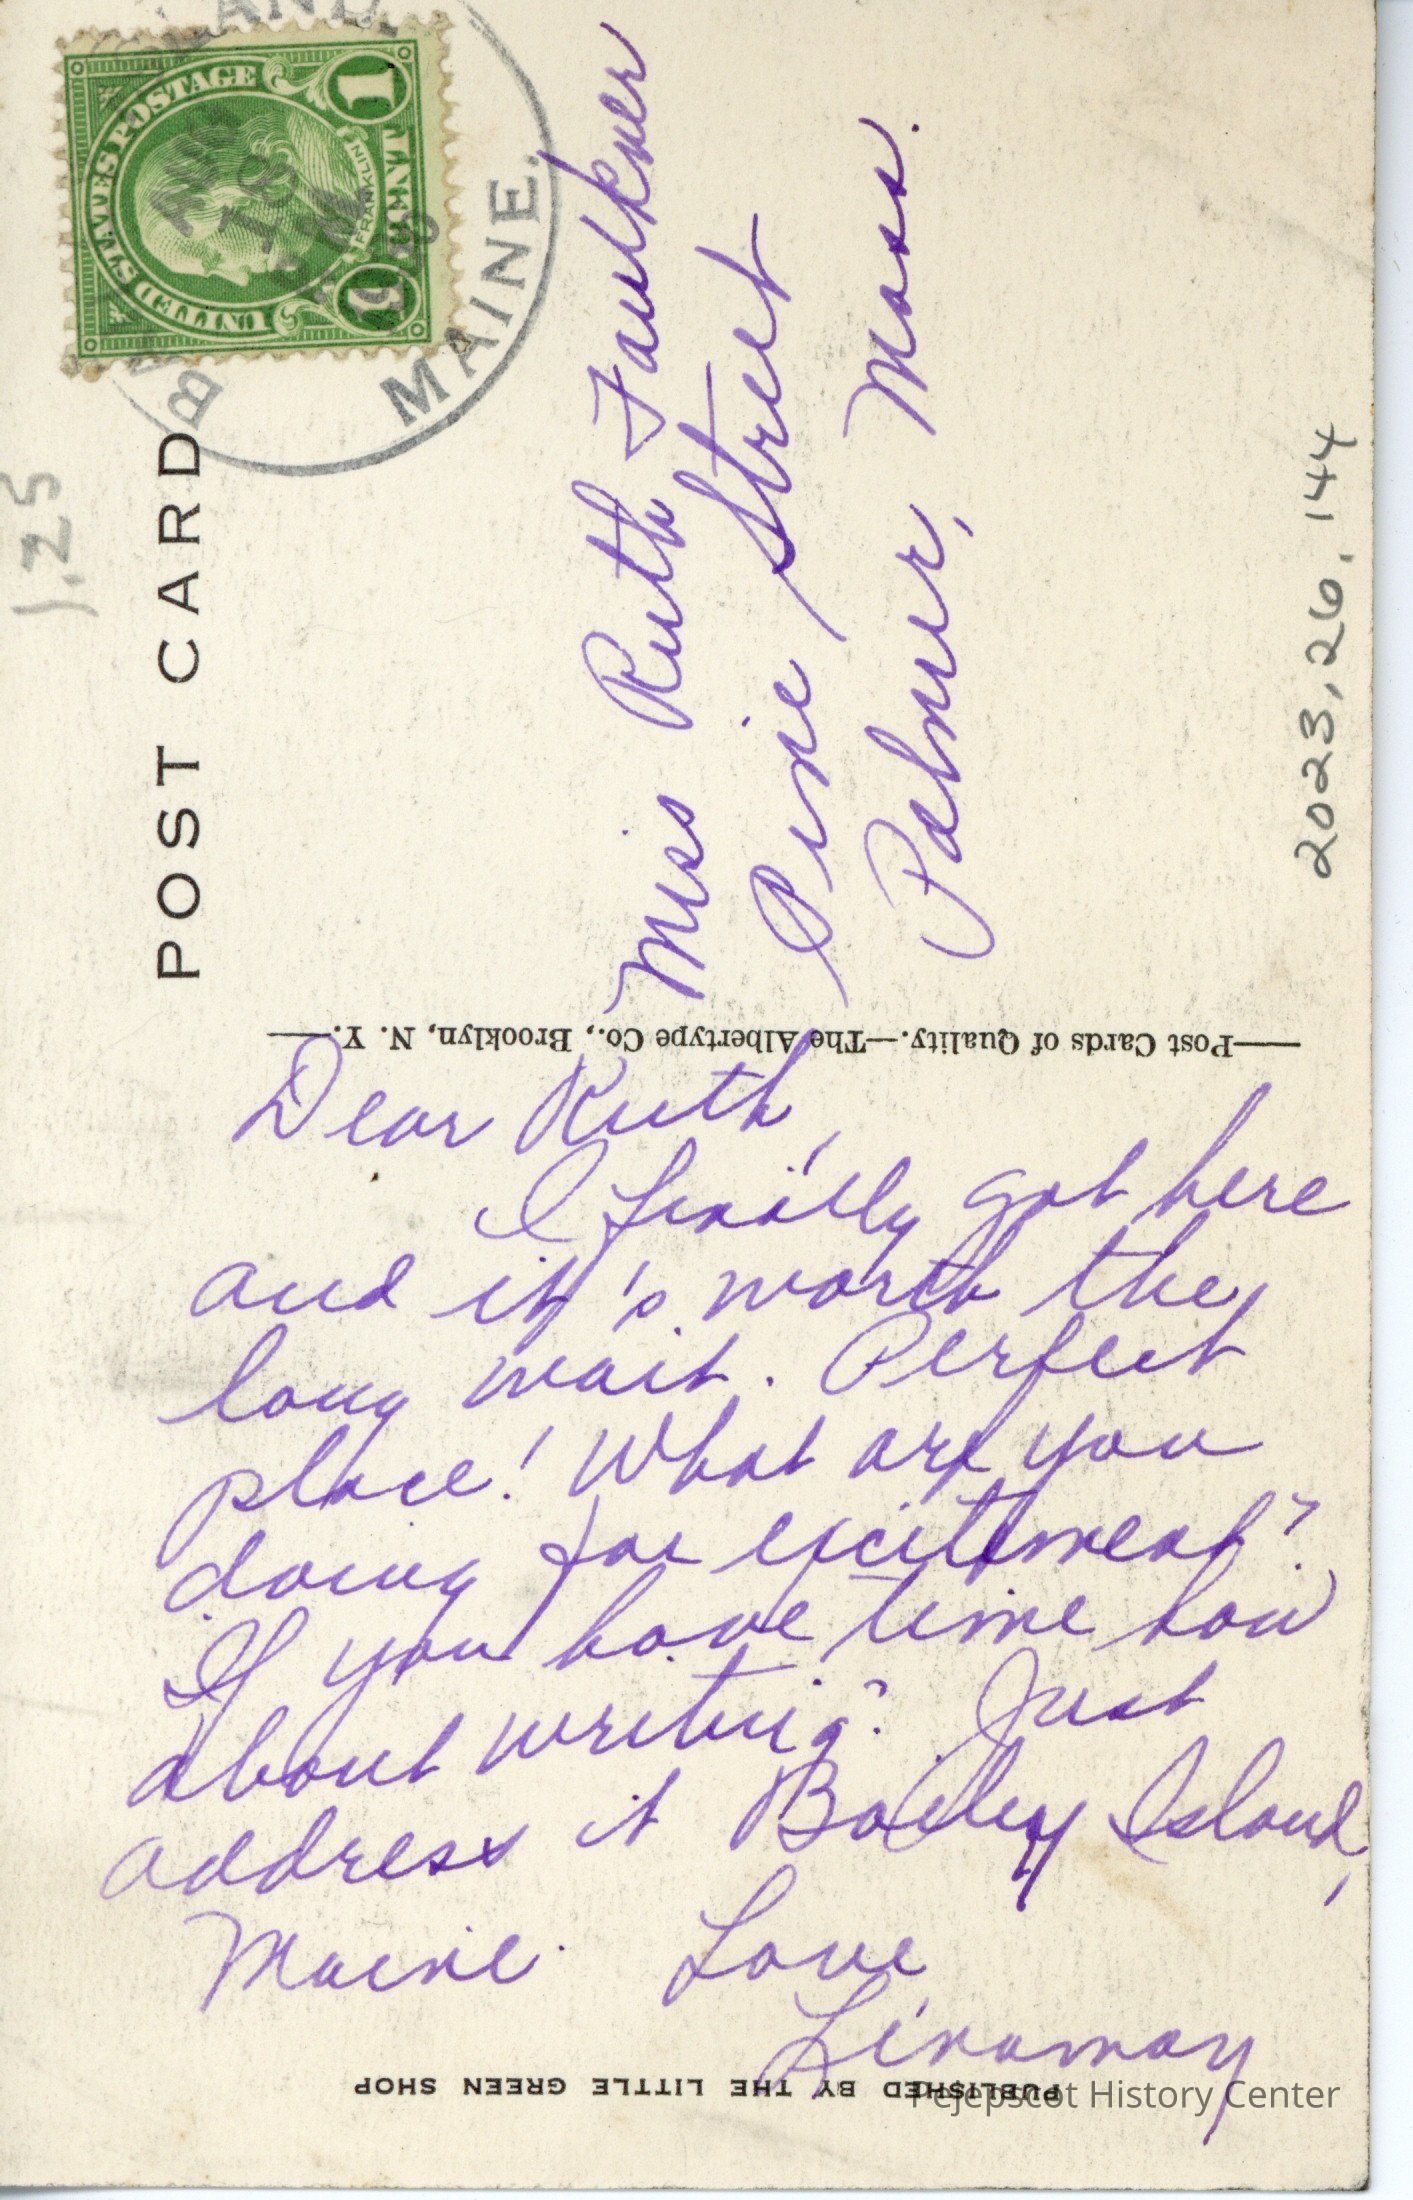 POST CARD
1.25
UNITED STATES POSTAGE
FRANKLIN
1 CENT 1
AUG
18
M
MAINE.
Miss Ruth Faulkner
Pine Street
Palmer, Mass.
2023.26.144
—Post Cards of Quality.—The Albertype Co., Brooklyn, N. Y.—
Dear Ruth,
I finally got here
and it's worth the
long wait. Perfect
place! What are you
doing for excitement?
If you have time how
about writing? Just
address it Bailey Island,
Maine. Love
Linamay
PUBLISHED BY THE LITTLE GREEN SHOP
Pejepscot History Center